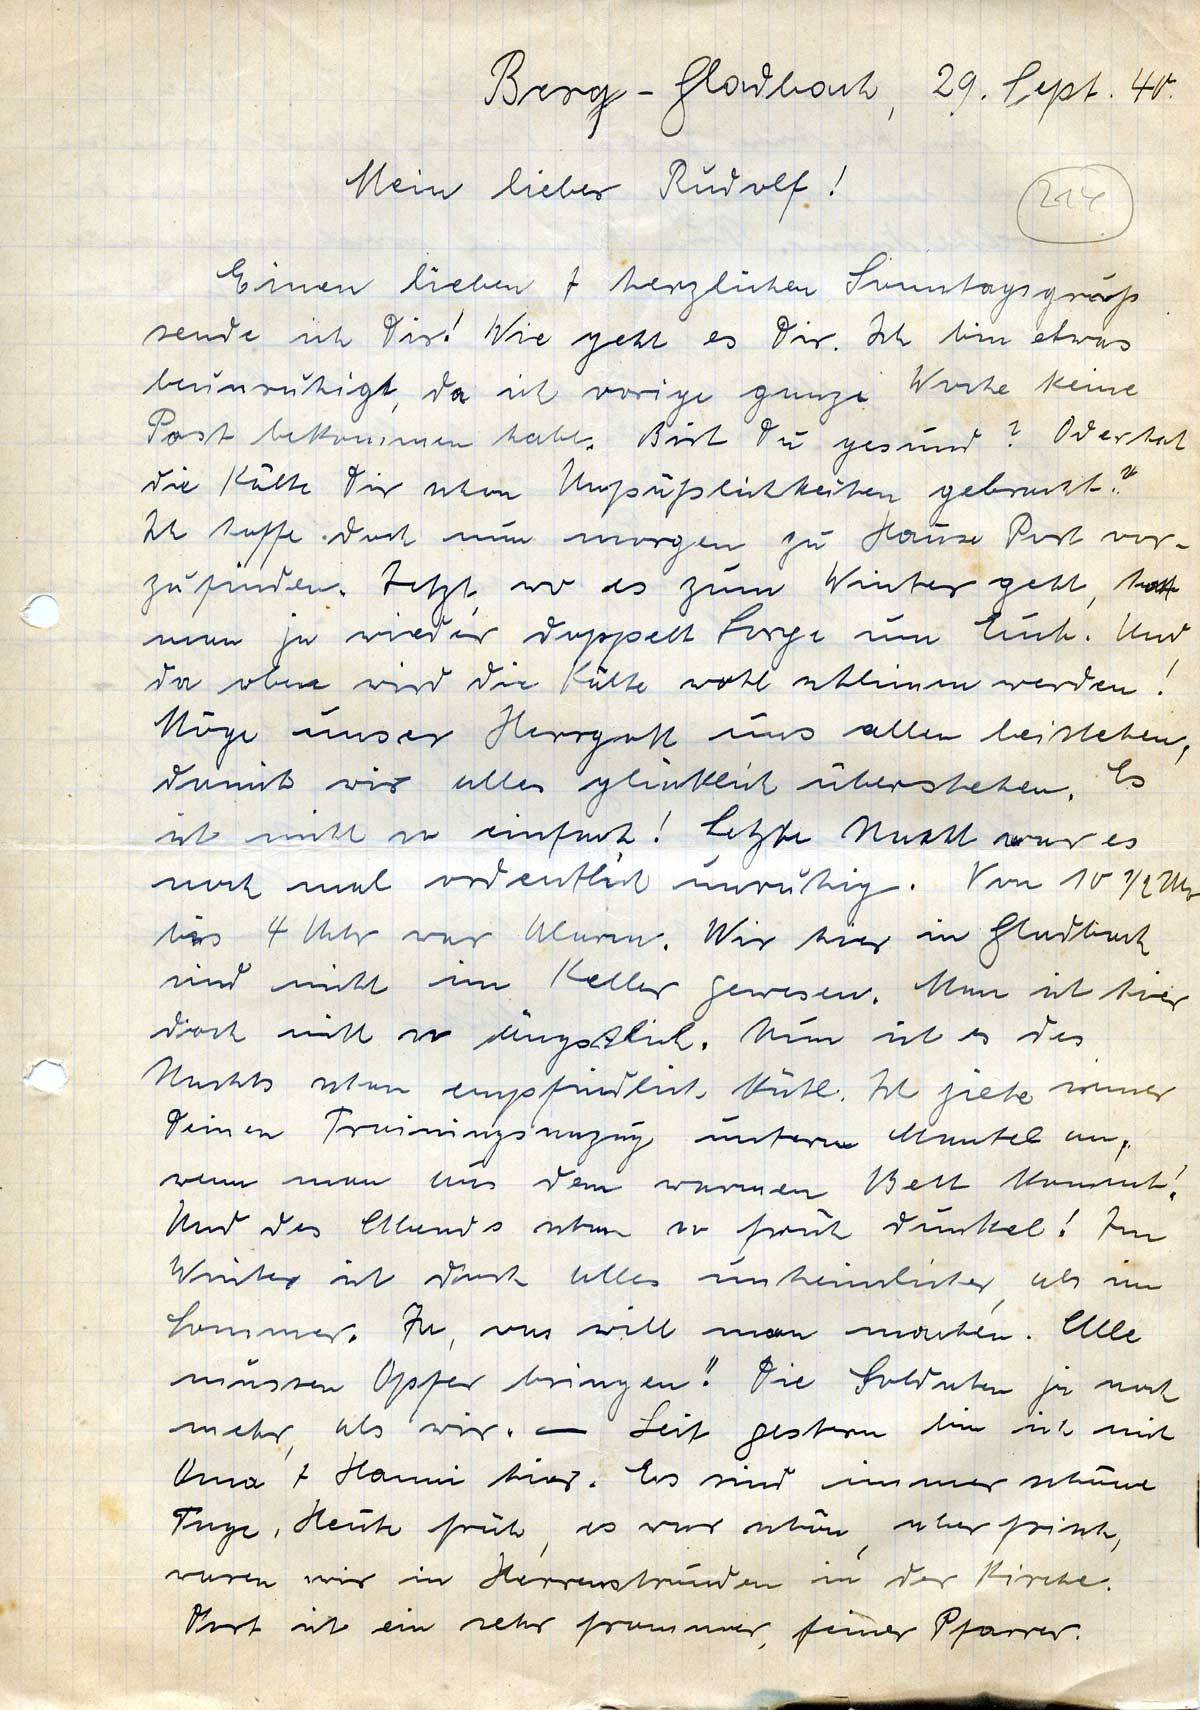 Berg-Gladbach, 29. Sept. 40.
Mein lieber Rudolf!
214
Einen lieben + herzlichen Sonntagsgruß
sende ich Dir! Wie geht es Dir. Ich bin etwas
beunruhigt, da ich vorige ganze Woche keine
Post bekommen habe. Bist Du gesund? Oder hat
die Kälte Dir schon Unpäßlichkeiten gebracht?
Ich hoffe doch nun morgen zu Hause Post vor-
zufinden. Jetzt, wo es zum Winter geht, hat
man ja wieder doppelt Sorge um Euch. Und
da oben wird die Kälte wohl schlimm werden!
Möge unser Herrgott uns allen beistehen,
damit wir alles glücklich überstehen. Es
ist nicht so einfach! Letzte Nacht war es
noch mal ordentlich unruhig. Von 10 1/2 Uhr
bis 4 Uhr war Alarm. Wir hier in Gladbach
sind nicht im Keller gewesen. Man ist hier
doch nicht so ängstlich. Nun ist es des
Nachts schon empfindlich kühl. Ich ziehe immer
Deinen Trainingsanzug unterm Mantel an,
wenn man aus dem warmen Bett kommt!
Und des Abends schon so früh dunkel! Im
Winter ist doch alles unheimlicher, als im
Sommer. Ja, was will man machen. Alle
müssen Opfer bringen! Die Soldaten ja noch
mehr, als wir. — Seit gestern bin ich mit
Oma + Hanni hier. Es sind immer schöne
Tage. Heute früh, es war schön, aber frisch,
waren wir in Herrenstrunden in der Kirche.
Dort ist ein sehr frommer, feiner Pfarrer.